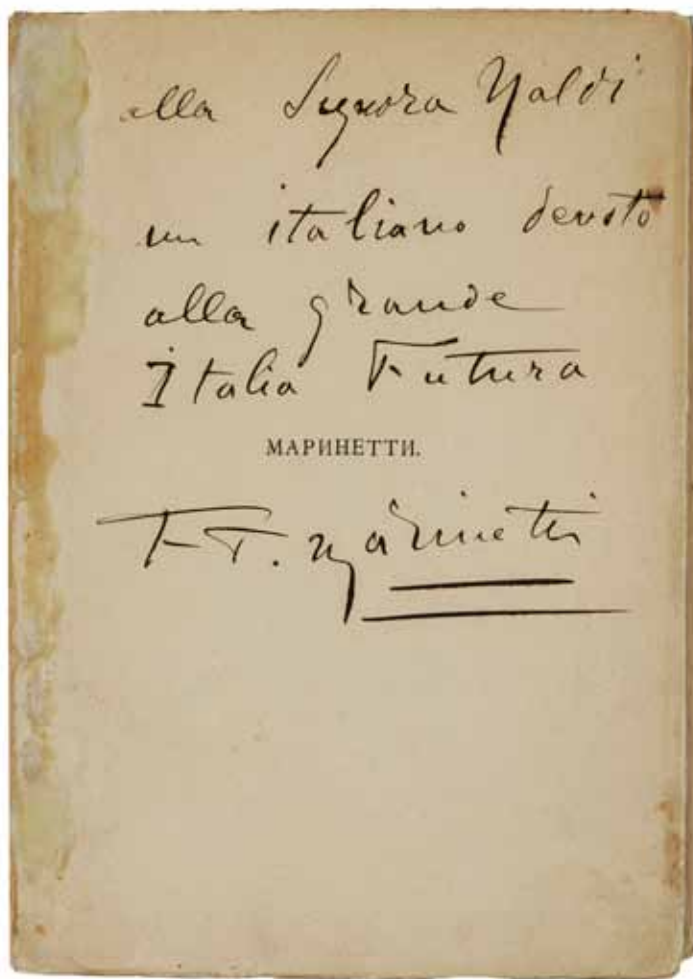 alla Signora Naldi
un italiano devoto
alla grande
Italia Futura
МАРИНЕТТИ.
F. T. Marinetti